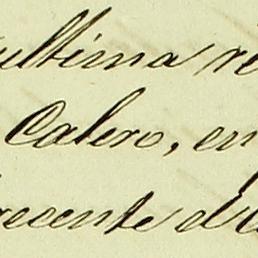 ultima re
Calero, en
reciente d